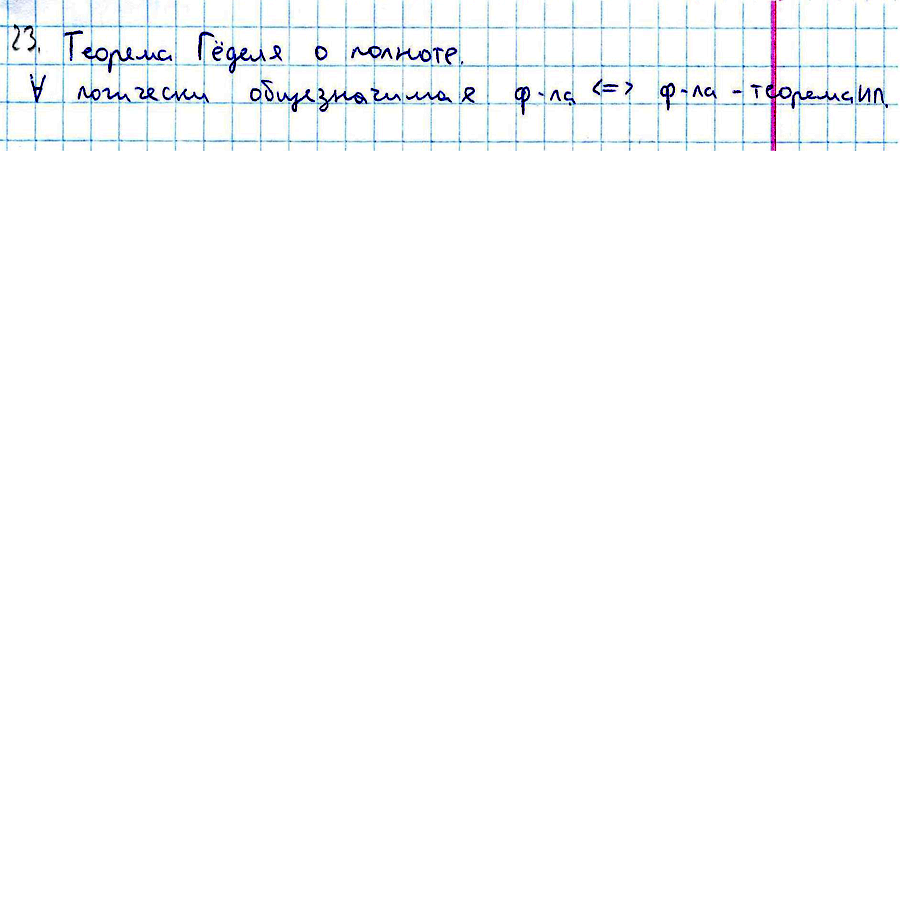 23. Теорема Гёделя о полноте.
∀ логически общезначимая ф-ла <=> ф-ла - теорема ИП.